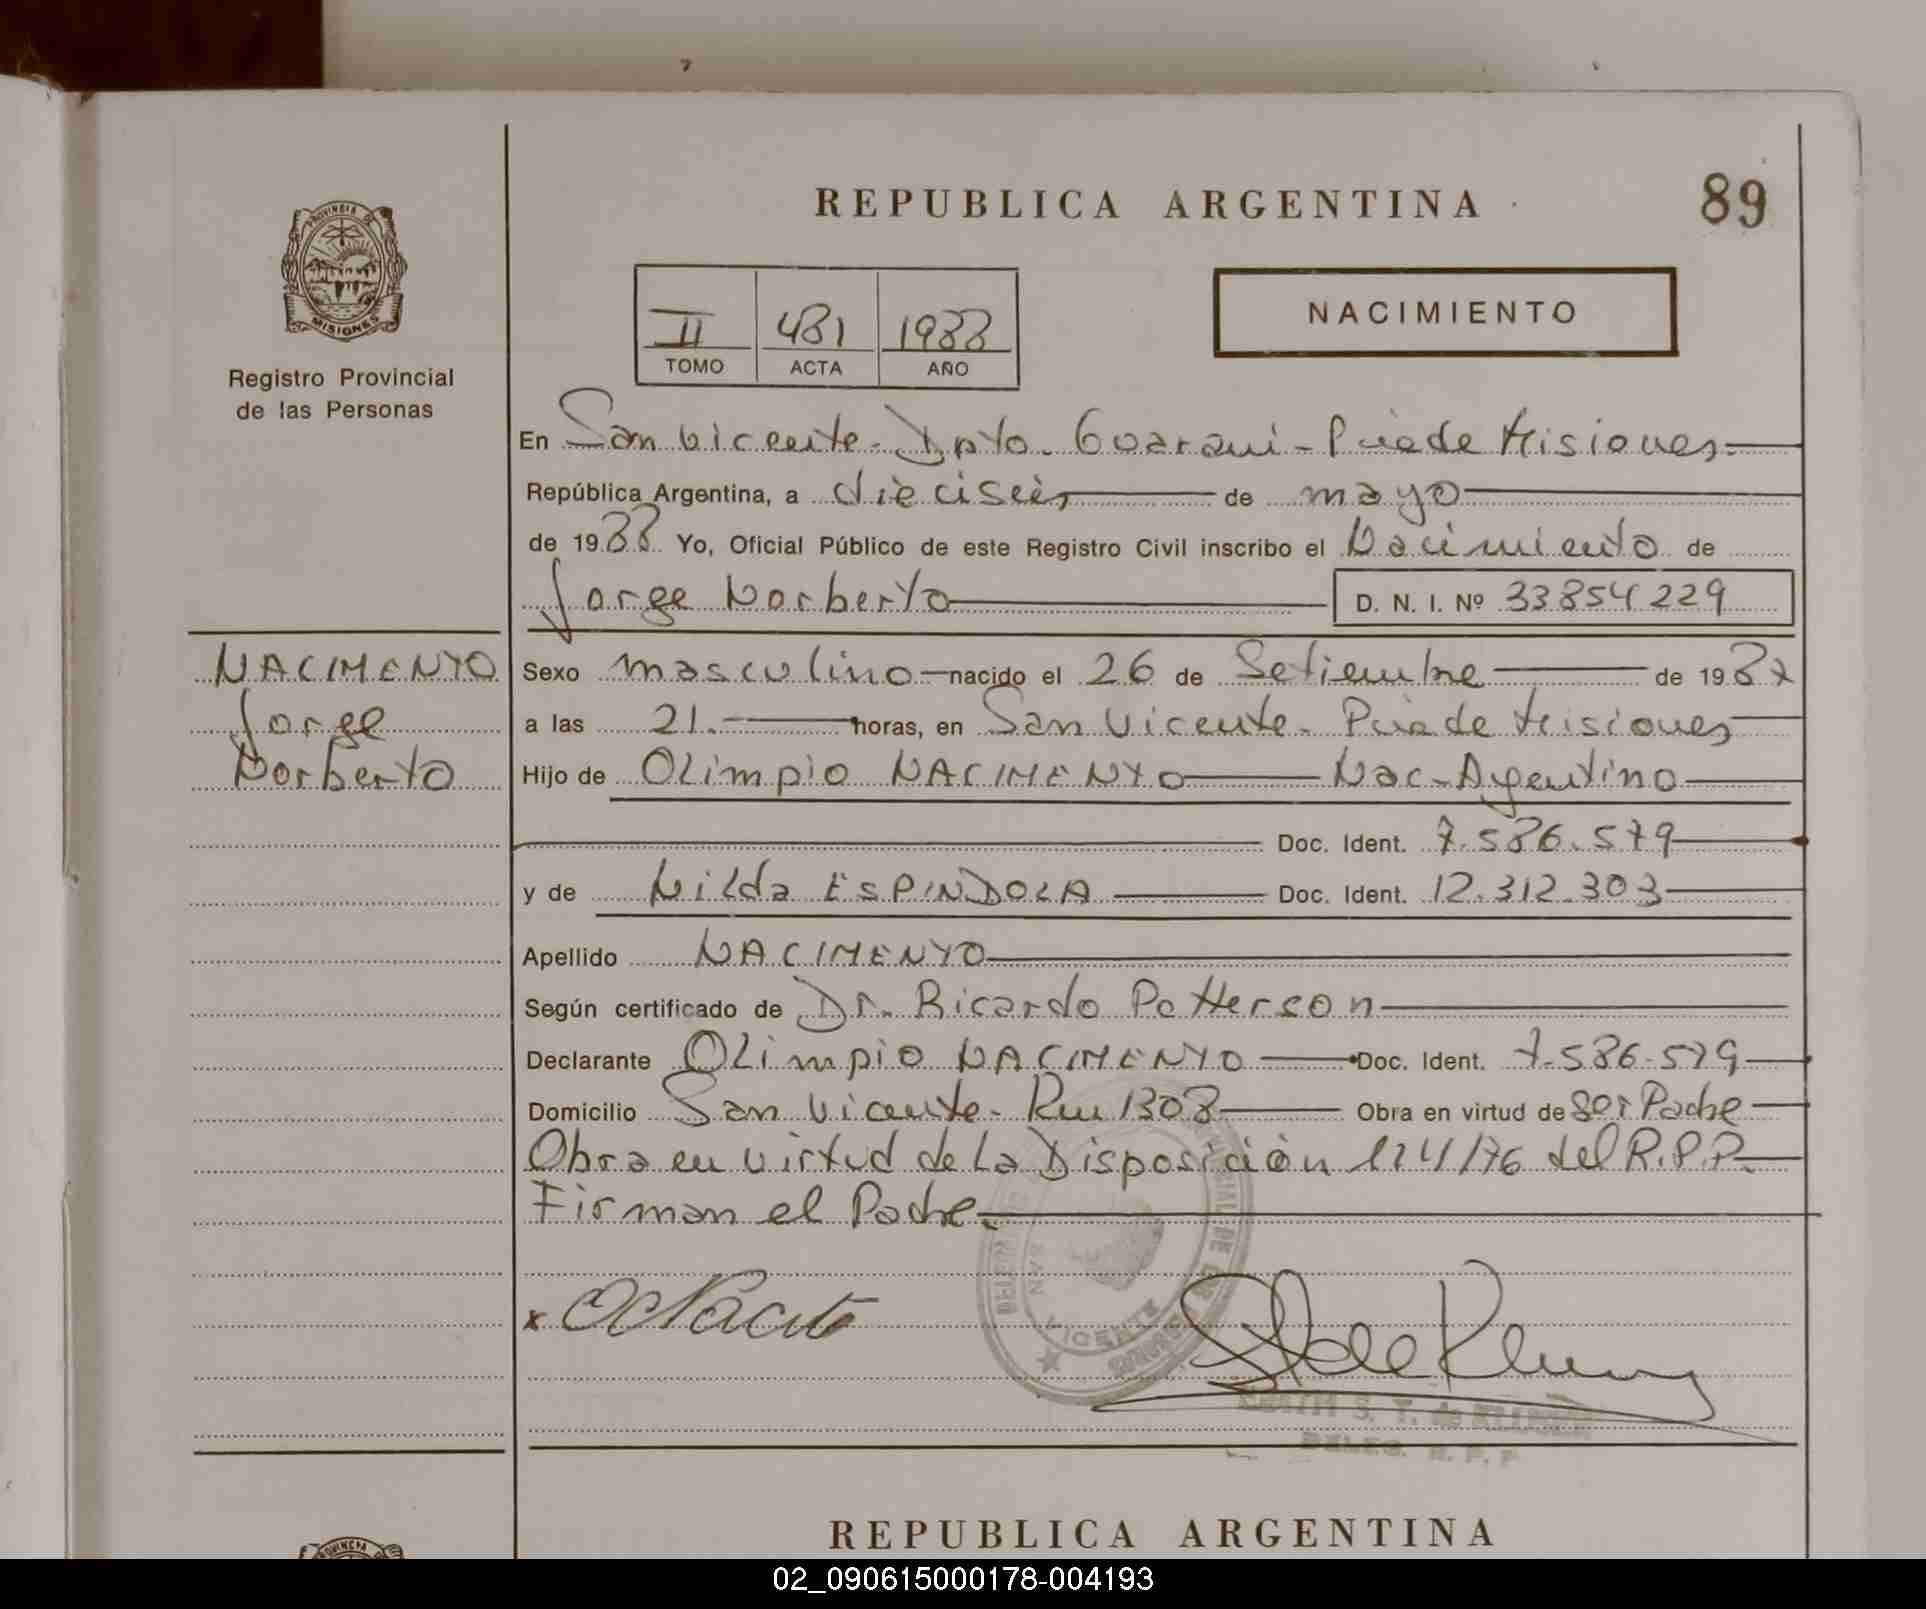 REPUBLICA ARGENTINA
89
PROVINCIA DE
MISIONES
Registro Provincial
de las Personas
II 481 1988
TOMO ACTA AÑO
NACIMIENTO
En San Vicente - Dpto. Guaraní - Pcia de Misiones.
República Argentina, a dieciseis de mayo
de 1988 Yo, Oficial Público de este Registro Civil inscribo el Nacimiento de
Jorge Norberto D. N. I. Nº 33854229
NACIMENTO
Jorge
Norberto
Sexo masculino nacido el 26 de Setiembre de 1987
a las 21. horas, en San Vicente. Pcia de Misiones
Hijo de Olimpio NACIMENTO Nac. Argentino
Doc. Ident. 7.586.579
y de Nilda ESPINDOLA Doc. Ident. 12.312.303
Apellido NACIMENTO
Según certificado de Dr. Ricardo Patterson
Declarante OLimpio NACIMENTO Doc. Ident. 7.586.579
Domicilio San Vicente. Km 1308 Obra en virtud de ser Padre
Obra en virtud de la Disposición 124/76 del R.P.P.
Firman el Padre.
SAN VICENTE
S. T. de KLUGER
DELEG. R. P. P
REPUBLICA ARGENTINA
PROVINCIA
02_090615000178-004193